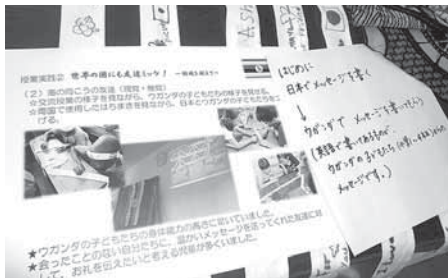 授業実践② 世界の国にも友達ミッケ!
(2)海の向こうの友達(視覚・触覚)
☆交流授業の様子を見ながら、ウガンダの子どもたちの様子を見せる。
☆両国で使用したはちまきを見ながら、日本とウガンダの子どもたちをつ
げる。
★ウガンダの子どもたちの身体能力の高さに驚いていました。
★会ったことのない自分たちに、温かいメッセージを送ってくれた友達に対
して、お礼を伝えたいと考える児童が多くいました。
はじめに
日本でメッセージを書く
↓
ウガンダで メッセージを書いてもらう
(英語で書いてあるものが、
ウガンダの子どもたち
メッセージです。)